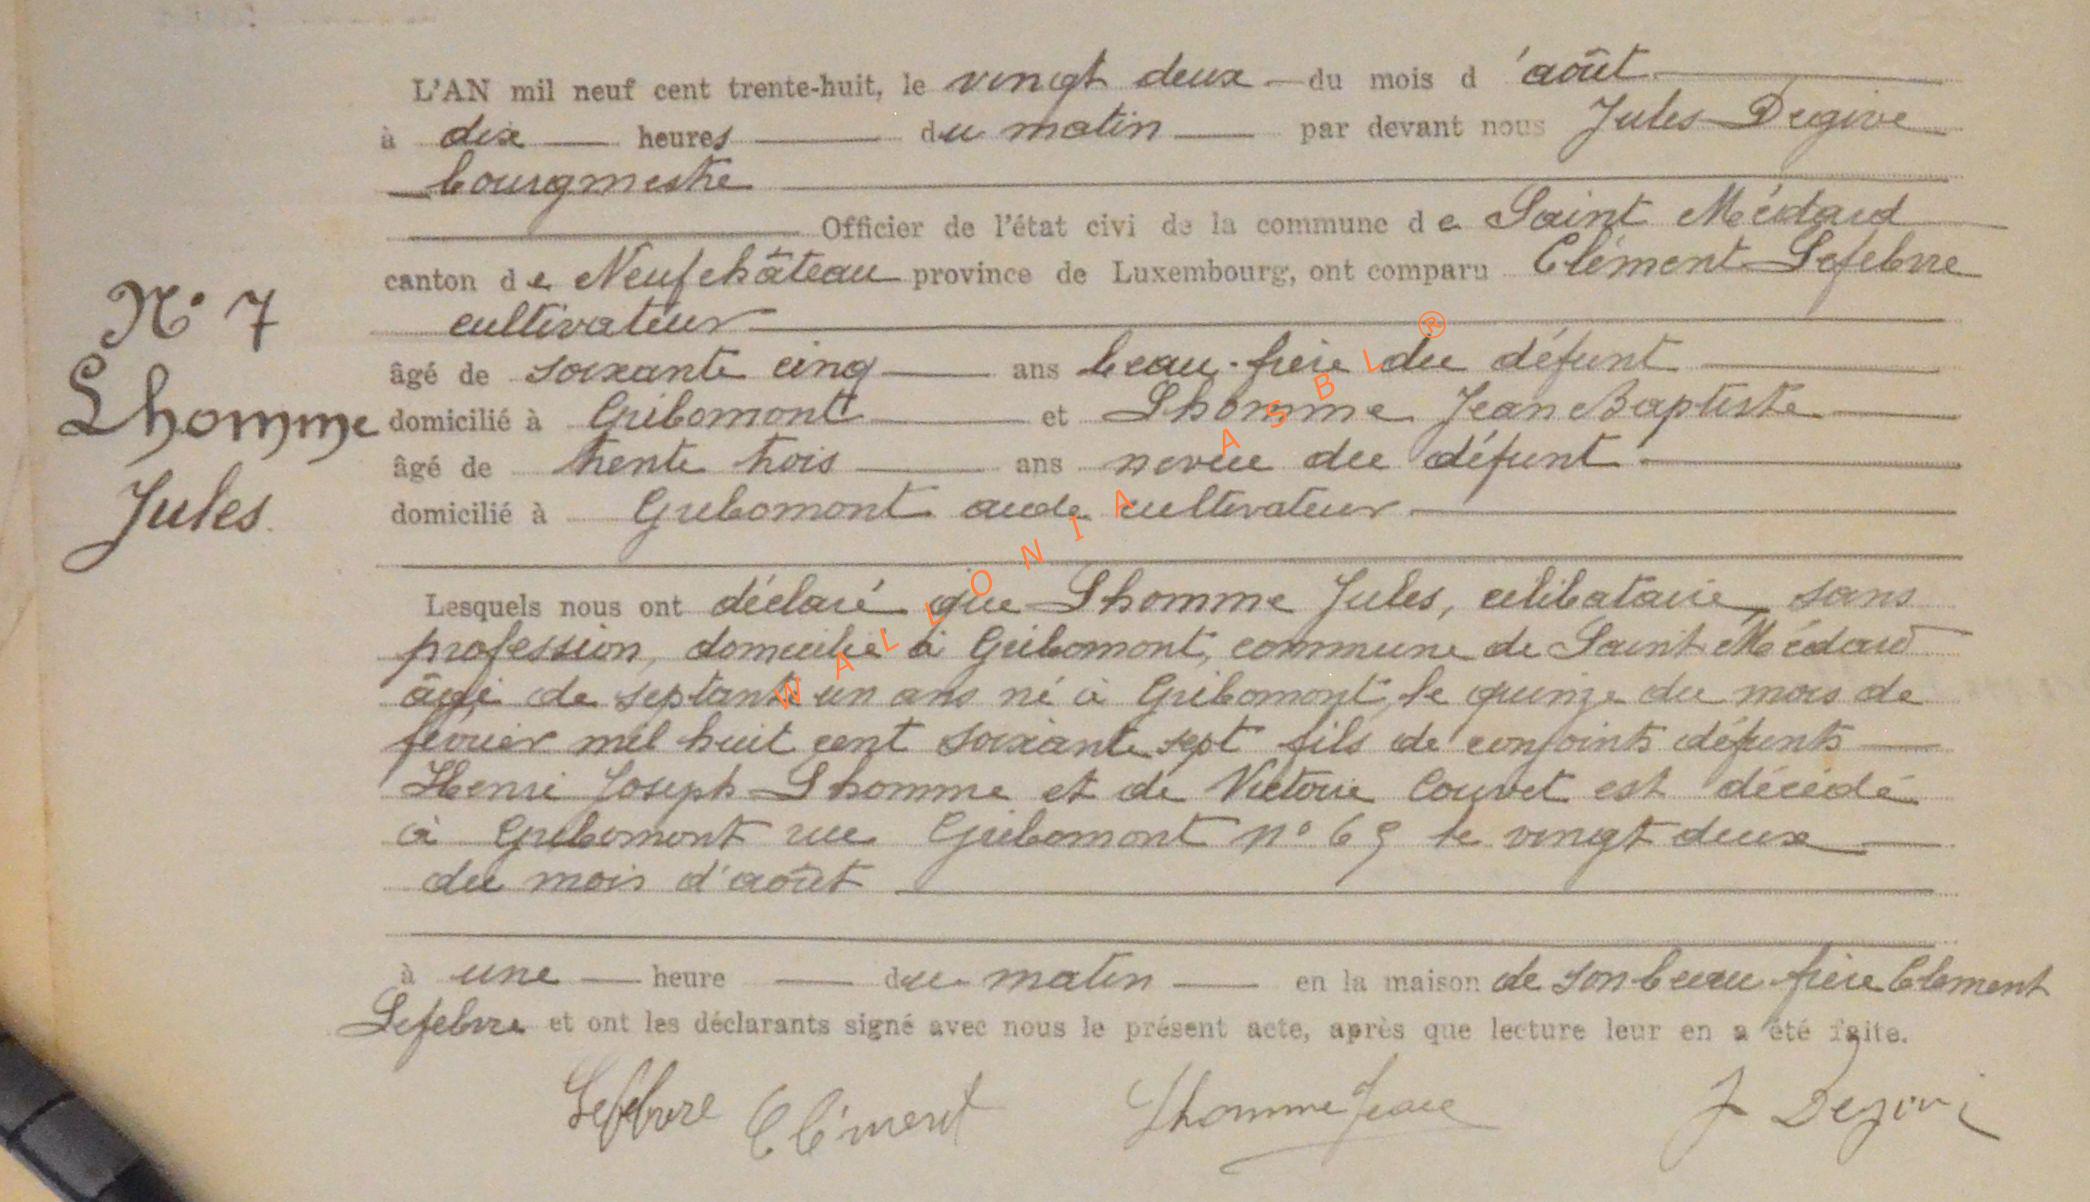 L'AN mil neuf cent trente-huit, le vingt deux du mois d'août
à dix heures du matin par devant nous Jules Degive
bourgmestre
Officier de l'état civi de la commune de Saint Médard
canton de Neufchâteau province de Luxembourg, ont comparu Clément Lefebvre
cultivateur
âgé de soixante cinq ans beau-frère du défunt
domicilié à Gribomont et Lhomme Jean Baptiste
âgé de trente trois ans neveu du défunt
domicilié à Gribomont aide cultivateur
N° 7
Lhomme
Jules.
Lesquels nous ont déclaré que Lhomme Jules, célibataire, sans
profession, domicilié à Gribomont, commune de Saint Médard
âgé de septante un ans né à Gribomont, le quinze du mois de
février mil huit cent soixante sept fils de conjoints défunts
Henri Joseph Lhomme et de Victorie Couvet est décédé
à Gribomont rue Gribomont n° 69 le vingt deux
du mois d'août
à une heure du matin en la maison de son beau-frère Clement
Lefebvre et ont les déclarants signé avec nous le présent acte, après que lecture leur en a été faite.
Lefebvre Clément Lhomme Jean J Degive
WALLONIA ASBL ®